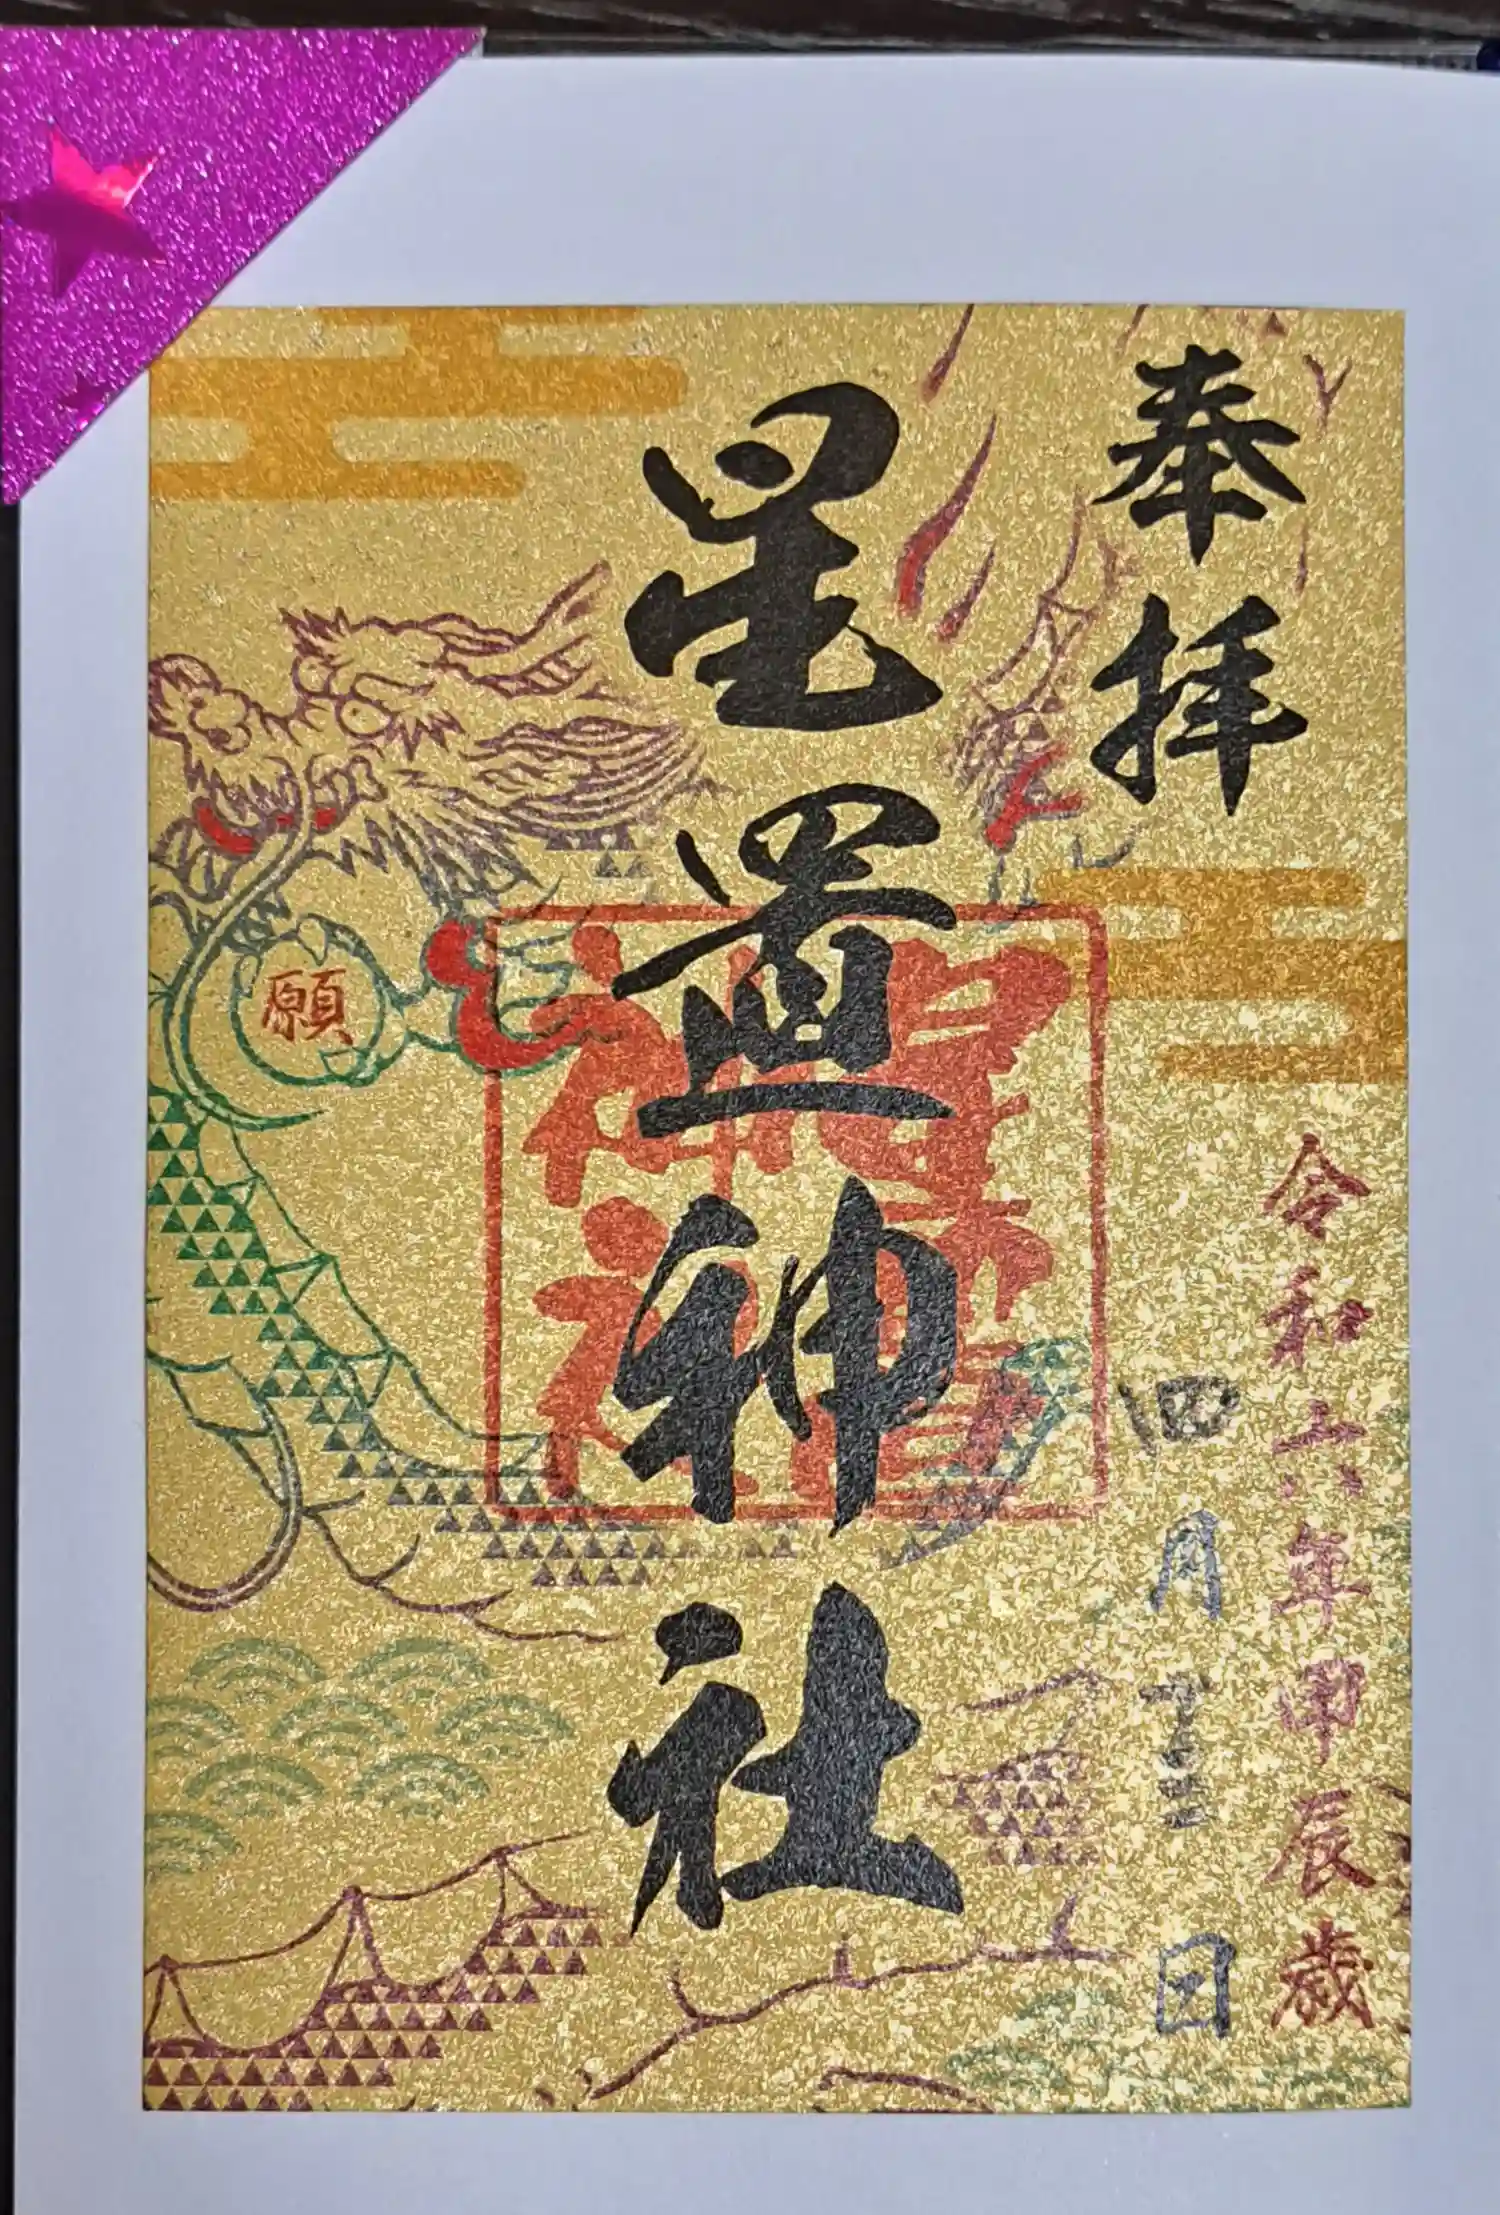 奉拝
令和六年甲辰歳
四月十三日
星置神社
星置
神社
願